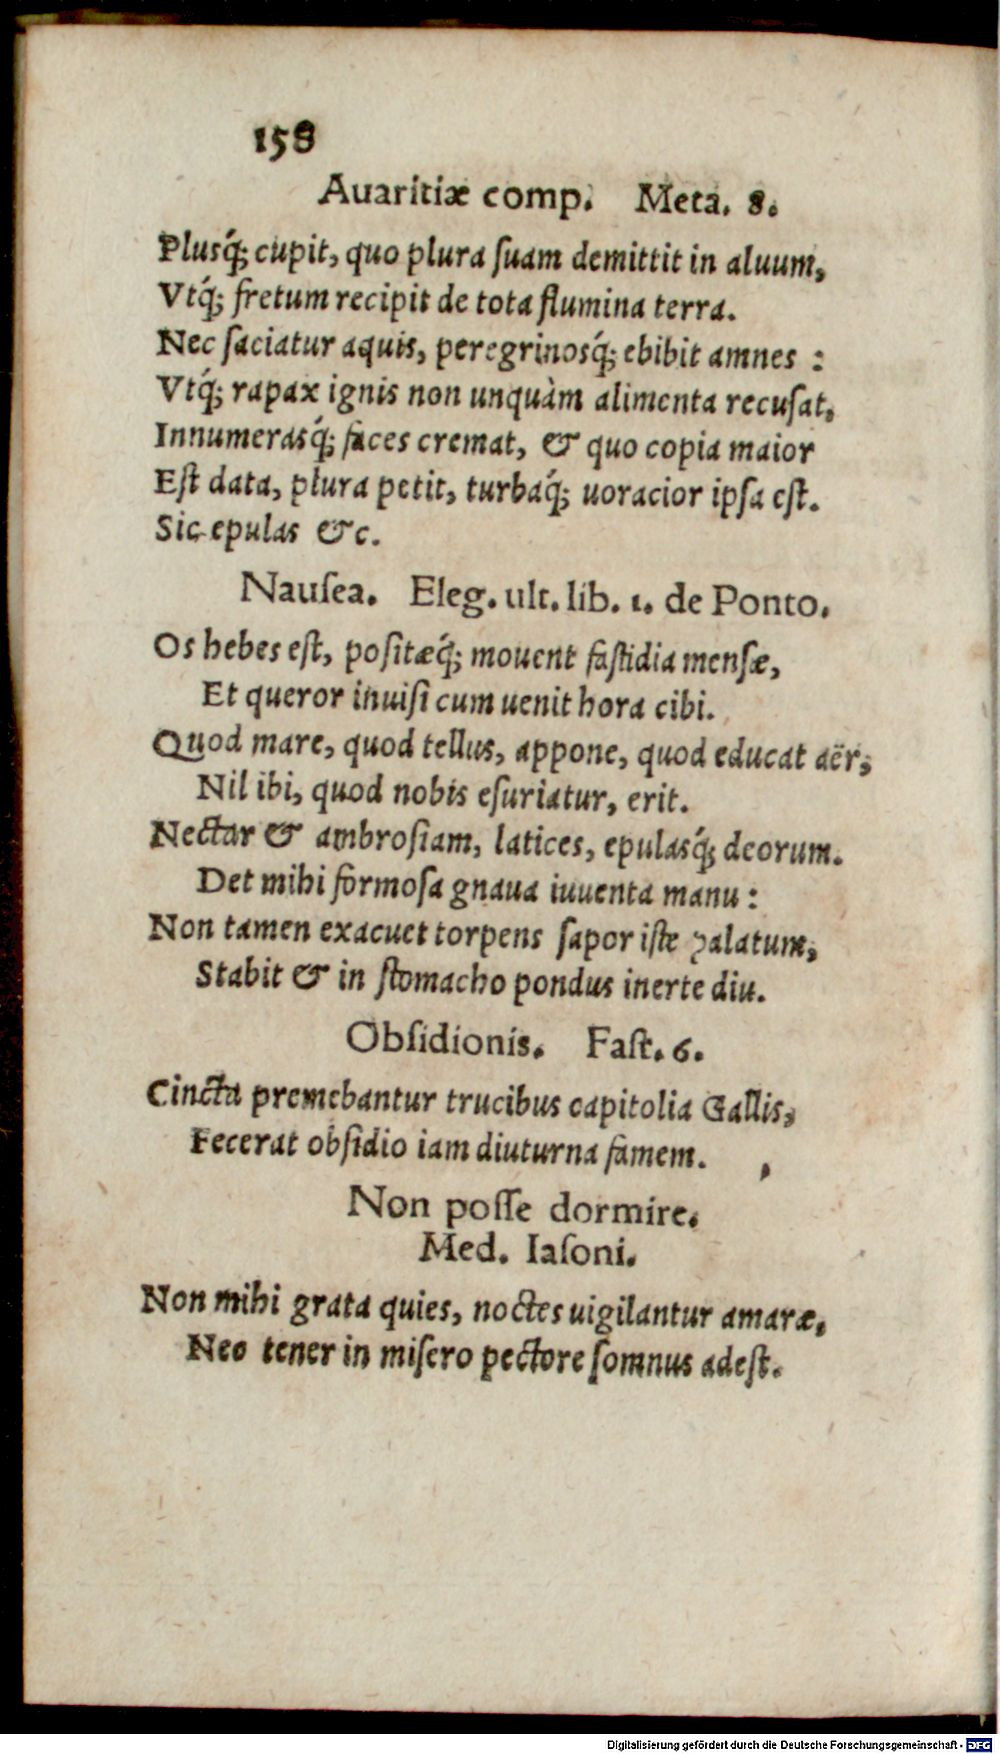 158
Auaritiæ comp. Meta. 8.
Plusq́; cupit, quo plura ſuam demittit in aluum,
Vtq́; fretum recipit de tota flumina terra.
Nec ſaciatur aquis, peregrinosq́; ebibit amnes :
Vtq́; rapax ignis non unquàm alimenta recuſat,
Innumerasq́; faces cremat, & quo copia maior
Eſt data, plura petit, turbaq́; uoracior ipſa eſt.
Sic epulas &c.
Nauſea. Eleg. ult. lib. 1. de Ponto.
Os hebes eſt, poſitæq́; mouent faſtidia menſæ,
Et queror inuiſi cum uenit hora cibi.
Quod mare, quod tellus, appone, quod educat aër,
Nil ibi, quod nobis eſuriatur, erit.
Nectar & ambroſiam, latices, epulasq́; deorum.
Det mihi formoſa gnaua iuuenta manu :
Non tamen exacuet torpens ſapor iſte palatum,
Stabit & in ſtomacho pondus inerte diu.
Obſidionis. Faſt. 6.
Cincta premebantur trucibus capitolia Gallis,
Fecerat obſidio iam diuturna famem.
Non poſſe dormire.
Med. Iaſoni.
Non mihi grata quies, noctes uigilantur amaræ,
Neo tener in miſero pectore ſomnus adeſt.
Digitalisierung gefördert durch die Deutsche Forschungsgemeinschaft - DFG